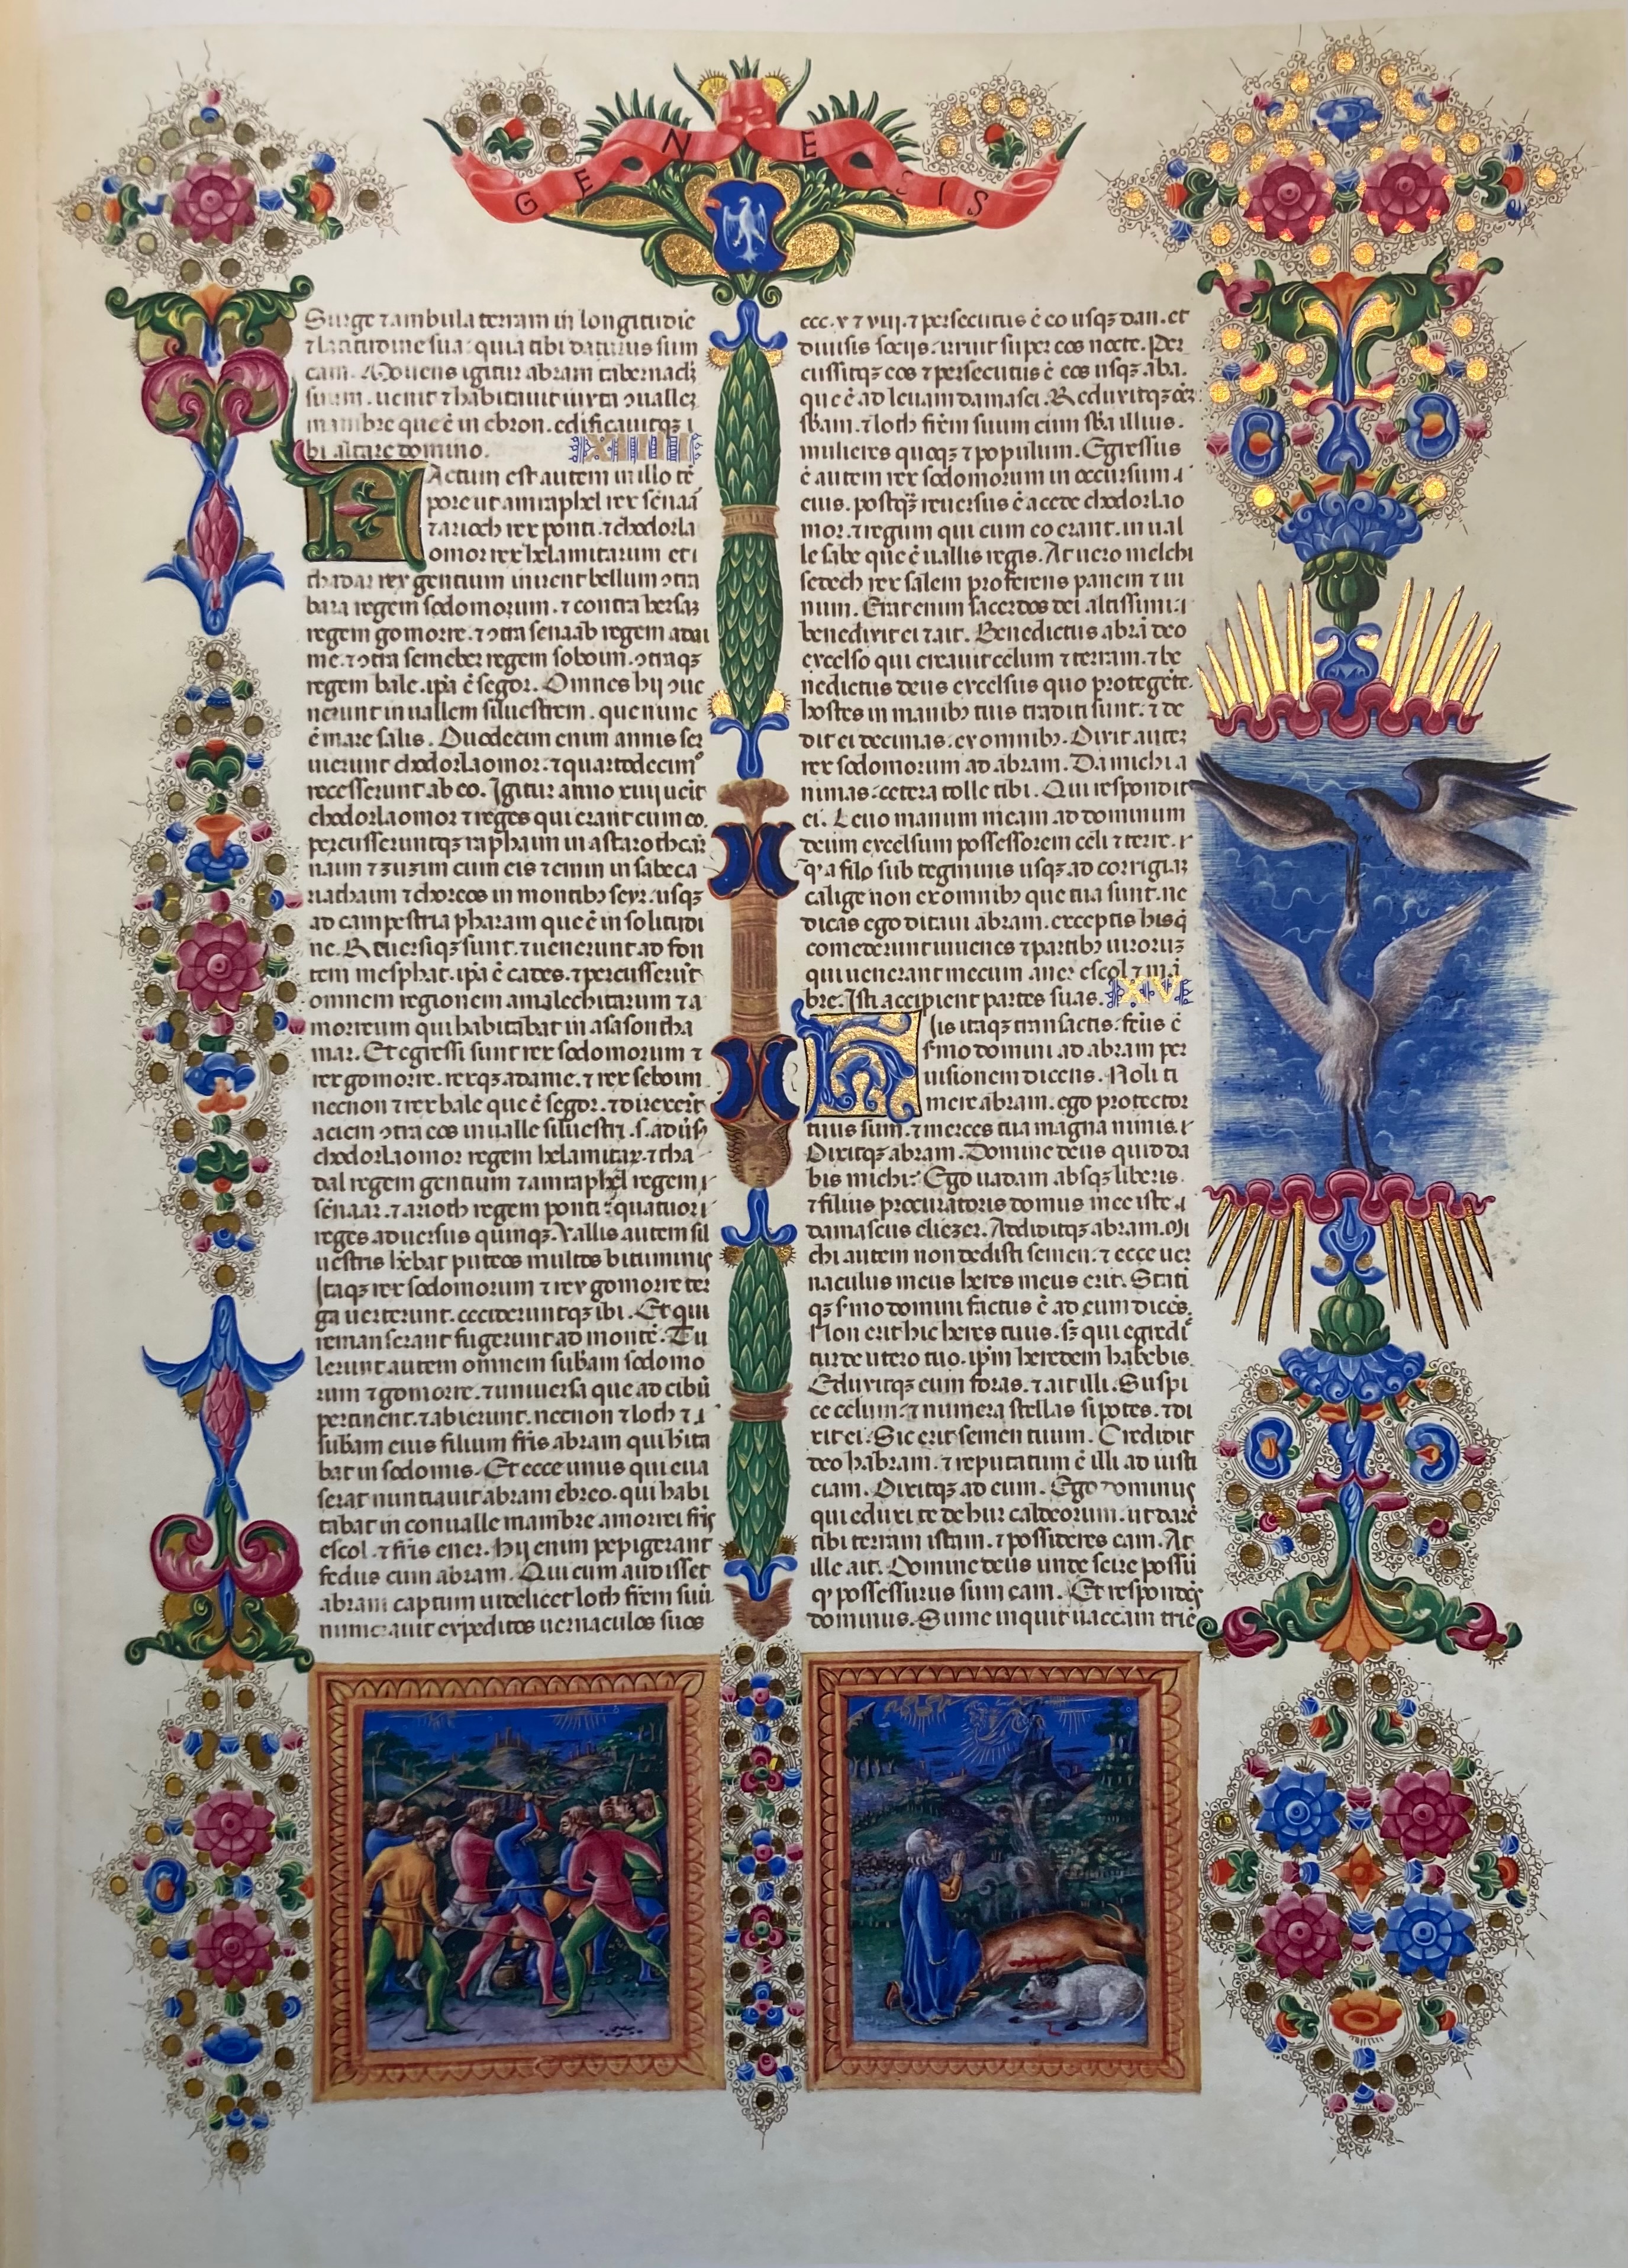 GENESIS
Surge ⁊ ambula terram in longitudīe
⁊ latitudine sua: quia tibi daturus sum
eam. Mouens igitur abram tabernacl̄ꝫ
suum. uenit ⁊ habitauit iuxta ↄualleꝫ
mambre que ē in ebron. edificauitqꝫ i
bi altare domino.
XIIII
FActum est autem in illo tē
pore ut amraphel rex sēnaā
⁊ arioch rex ponti. ⁊ chodorla
omor rex helamitarum et i
thadar rex gentium inirent bellum ↄtra
bara regem sodomorum. ⁊ contra bersaꝫ
regem gomorre. ⁊ ↄtra senaab regem adai
me. ⁊ ↄtra semeber regem soboim. ↄtraqꝫ
regem bale. ip̄a ē segor. Omnes hij ↄue
nerunt in uallem siluestrem. que nunc
ē mare salis. Duodecim enim annis ser
uierunt chodorlaomor. ⁊ quartodecimº
recesserunt ab eo. Igitur anno xiiij uēit
chodorlaomor ⁊ reges qui erant cum eo.
percusseruntqꝫ raphaim in astaroth car
naim ⁊ zuzim cum eis ⁊ emim in sabe ca
riathaim ⁊ choreos in montibꝫ seyr. usqꝫ
ad campestria pharam que ē in solitudi
ne. Reuersiqꝫ sunt. ⁊ uenerunt ad fon
tem mesphat. ip̄a ē cades. ⁊ percusserūt
omnem regionem amalechitarum ⁊ a
morreum qui habitabat in asason tha
mar. Et egressi sunt rex sodomorum ⁊
rex gomorre. rexqꝫ adame. ⁊ rex seboim
necnon ⁊ rex bale que ē segor. ⁊ direxerūt
aciem ↄtra eos in ualle siluestri. s. aduīs
chodorlaomor regem helamitaꝝ. ⁊ tha
dal regem gentium ⁊ amraphel regem
sēnaar. ⁊ arioth regem ponti: quatuor
reges aduersus quinqꝫ. Vallis autem sil
uestris h̄ebat puteos multos bituminis
Itaqꝫ rex sodomorum ⁊ rex gomorre ter
ga uerterunt. cecideruntqꝫ ibi. Et qui
remanserant fugerunt ad montē. Tu
lerunt autem omnem sub̄am sodomo
rum ⁊ gomorre. ⁊ uniuersa que ad cibū
pertinent. ⁊ abierunt. necnon ⁊ loth ⁊
sub̄am eius filium fr̄is abram qui h̄ita
bat in sodomis. Et ecce unus qui eua
serat nuntiauit abram ebreo. qui habi
tabat in conualle mambre amorrei fr̄is
escol. ⁊ fr̄is ener. hij enim pepigerant
fedus cum abram. Qui cum audisset
abram captum uidelicet loth fr̄em suū
numerauit expeditos uernaculos suos
ccc. x ⁊ viii. ⁊ persecutus ē eo usqꝫ dan. et
diuisis socijs. irruit super eos nocte. Per
cussitqꝫ eos ⁊ persecutus ē eos usqꝫ aba.
que ē ad leuam damasci. Reduxitqꝫ oēꝫ
sb̄am. ⁊ loth fr̄em suum cum sb̄a illius.
mulieres quoqꝫ ⁊ populum. Egressus
ē autem rex sodomorum in occursum
eius. postqꝫ reuersus ē a cede chodorlao
mor. ⁊ regum qui cum eo erant. in ual
le sabe que ē uallis regis. At uero melchi
sedech rex salem proferens panem ⁊ ui
num. Erat enim sacerdos dei altissimi:
benedixit ei ⁊ ait. Benedictus abrā deo
excelso qui creauit celum ⁊ terram. ⁊ be
nedictus deus excelsus quo protegēte.
hostes in manibꝫ tuis traditi sunt. ⁊ de
dit ei decimas. ex omnibꝫ. Dixit autē
rex sodomorum ad abram. Da michi a
nimas. cetera tolle tibi. Qui respondit
ei. Leuo manum meam ad dominum
deum excelsum possessorem celi ⁊ terre.
qꝫ a filo sub tegminis usqꝫ ad corrigiaꝫ
calige non ex omnibꝫ que tua sunt. ne
dicas ego ditaui abram. exceptis his q̄
comederunt iuuenes ⁊ partibꝫ uiroruꝫ
qui uenerant mecum aner escol ⁊ mā
bre. Isti accipient partes suas.
XV
HIs itaqꝫ transactis. fctūs ē
s̄mo domini ad abram per
uisionem dicens. Noli ti
mere abram. ego protector
tuus sum. ⁊ merces tua magna nimis.
Dixitqꝫ abram. Domine deus quid da
bis michi: Ego uadam absqꝫ liberis.
⁊ filius procuratoris domus mee iste
damascus eliezer. Addiditqꝫ abram. Mi
chi autem non dedisti semen. ⁊ ecce uer
naculus meus heres meus erit. Stati
qꝫ s̄mo domini factus ē ad eum dicēs.
Non erit hic heres tuus. sꝫ qui egredi
tur de utero tuo. ip̄m heredem habebis.
Eduxitqꝫ eum foras. ⁊ ait illi. Suspi
ce celum: ⁊ numera stellas si potes. ⁊ di
xit ei. Sic erit semen tuum. Credidit
deo habram. ⁊ reputatum ē illi ad iusti
ciam. Dixitqꝫ ad eum. Ego dominus
qui eduxi te de hur caldeorum. ut darē
tibi terram istam. ⁊ possideres eam. At
ille ait. Domine deus unde scire possū
qꝫ possessurus sum eam. Et respondēs
dominus. Sume inquit uaccam triē